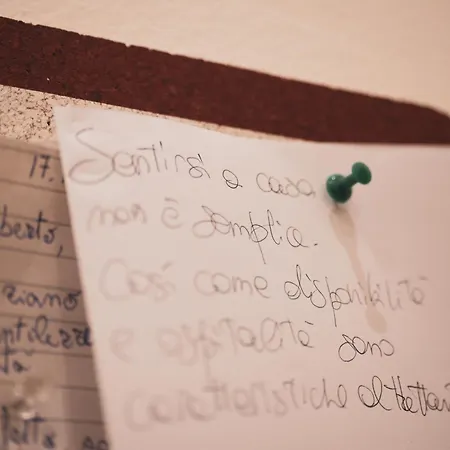 Sentirsi a casa
non è semplice.
Così come disponibilità
e ospitalità sono
caratteristiche
17.
ziano